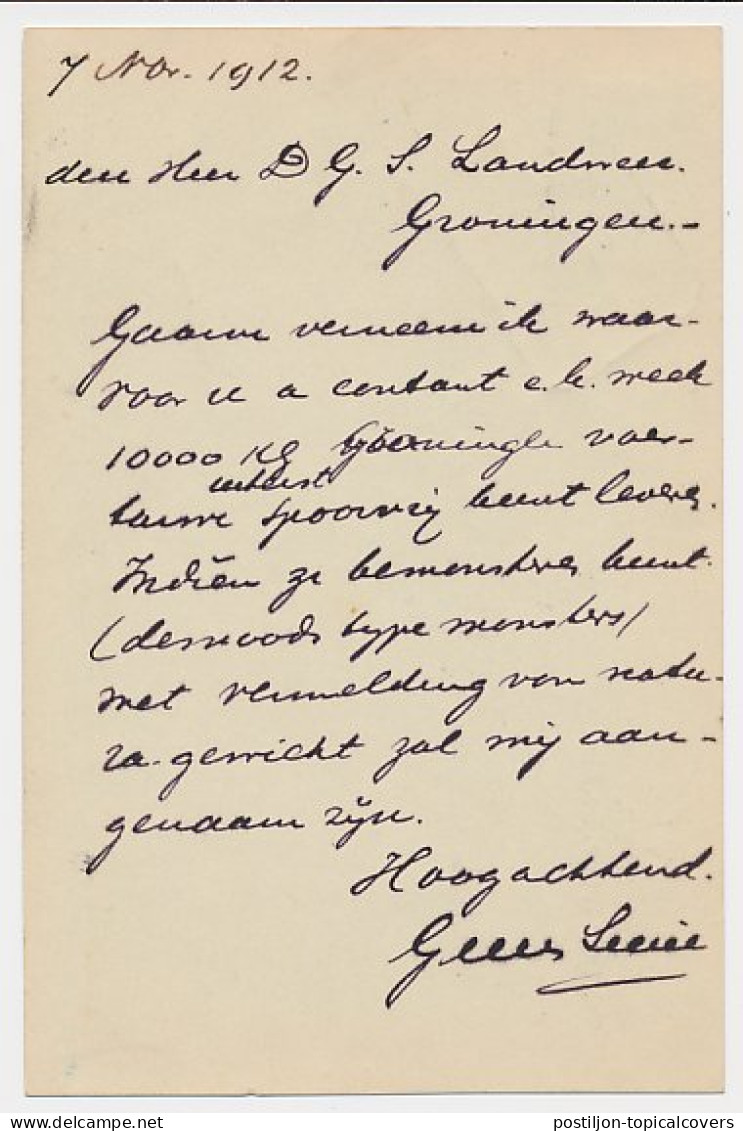 7 Nov. 1912.
den Heer D G. S. Landweer.
Groningen.-
Gaarne verneem ik waar-
voor u a contant e.k. week
10000 KG Groningle voer-
uiterst
tarwe spoorvrij kunt leveren.
Indien ze bemonsteren kunt.
(desnoods type monsters)
met vermelding van natu-
ra-gewicht zal mij aan-
genaam zijn.
Hoogachtend.
delcampe.net
postiljon-topicalcovers